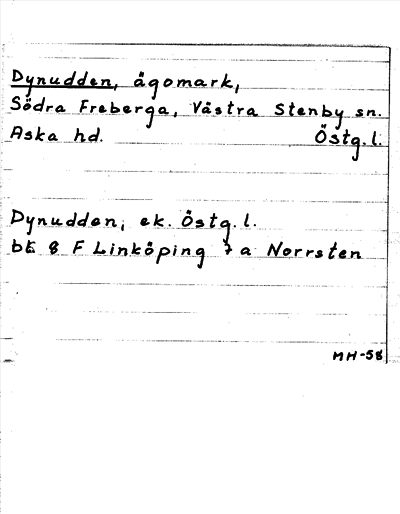 Dynudden, ägomark,
Södra Freberga, Västra Stenby sn.
Aska hd. Östg.l.
Dynudden, ek. Östg.l.
bE 8 F Linköping 7 a Norrsten
MH-58